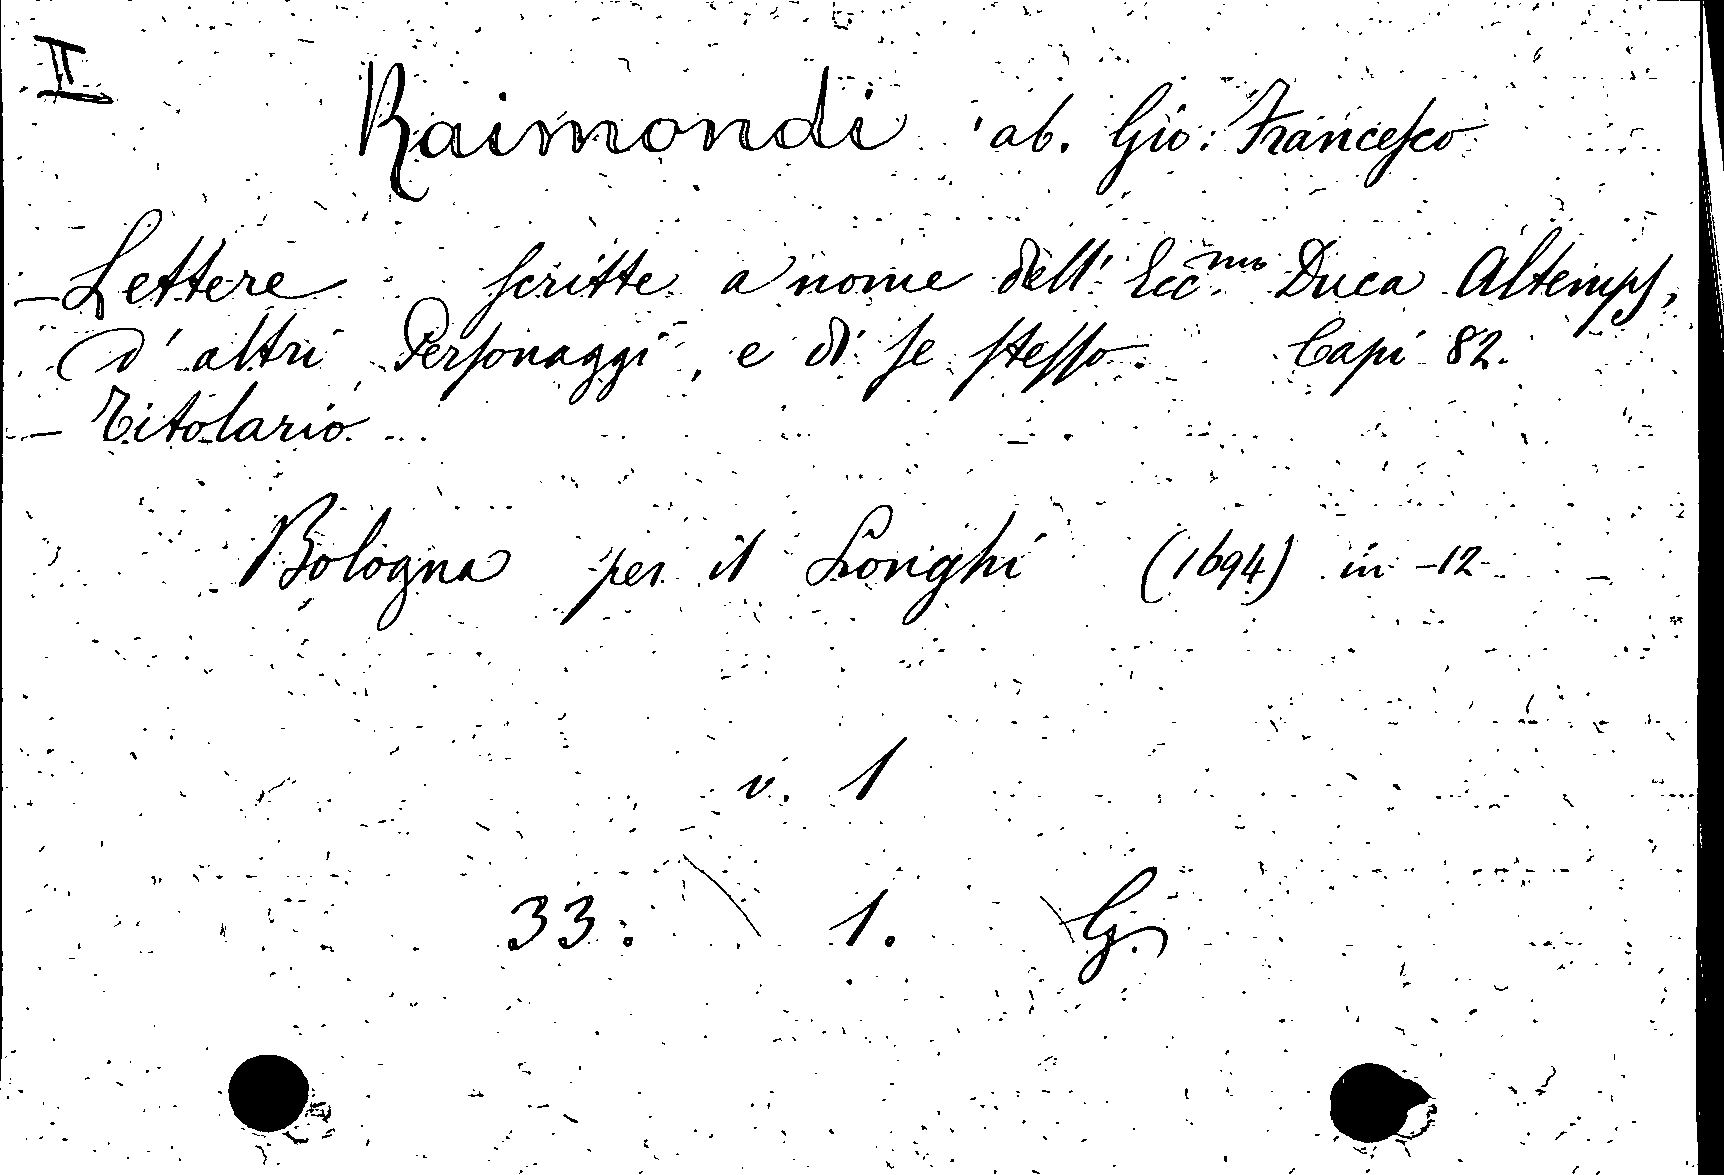 II
Raimondi ab. Gio: Francesco
- Lettere scritte a nome dell' Ecc.mo Duca Altemps,
d' altri Personaggi, e di se stesso. Capi 82.
- Titolario
Bologna per il Longhi (1694) in-12
v. 1
33. 1. G.